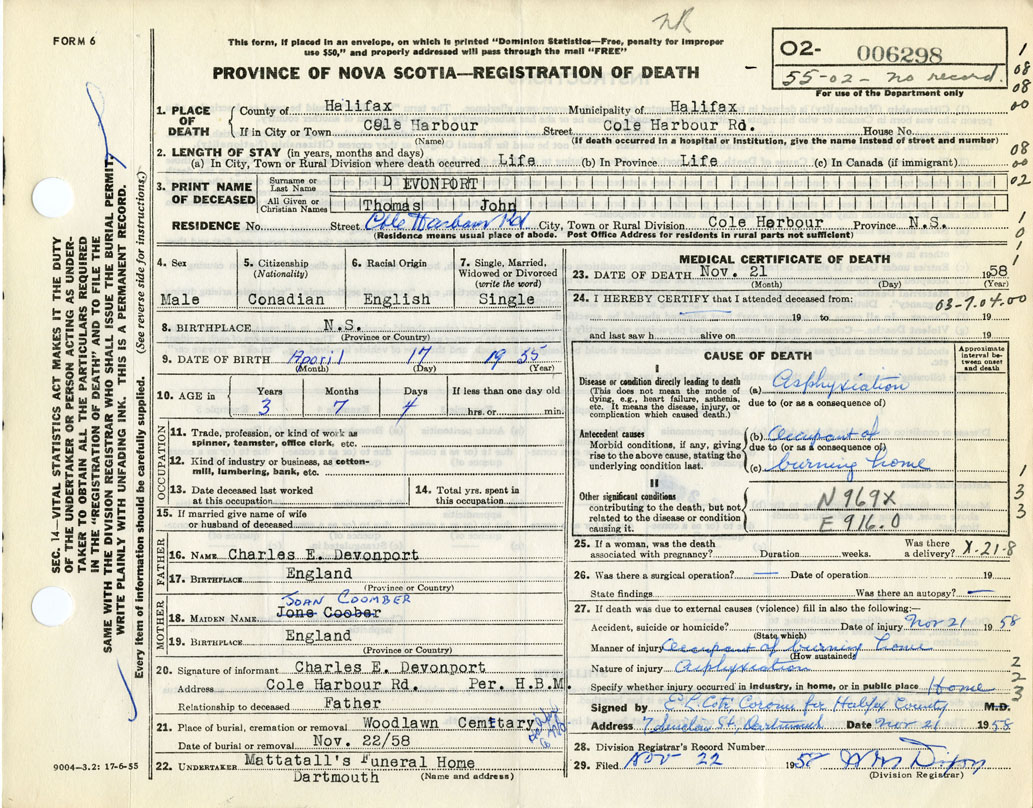 NR
FORM 6
This form, if placed in an envelope, on which is printed "Dominion Statistics—Free, penalty for improper
use $50," and properly addressed will pass through the mail "FREE"
PROVINCE OF NOVA SCOTIA—REGISTRATION OF DEATH
O2- 006298
55-02- no record.
For use of the Department only
1
08
08
00
1. PLACE OF DEATH
County of Halifax Municipality of Halifax
If in City or Town Cole Harbour Street Cole Harbour Rd. House No.
(Name) (If death occurred in a hospital or institution, give the name instead of street and number)
2. LENGTH OF STAY (in years, months and days)
(a) In City, Town or Rural Division where death occurred Life (b) In Province Life (c) In Canada (if immigrant)
08
00
02
3. PRINT NAME OF DECEASED
Surname or Last Name D EVONPORT
All Given or Christian Names Thomas John
RESIDENCE No. Street Cole Harbour Rd City, Town or Rural Division Cole Herbour Province N.S.
(Residence means usual place of abode. Post Office Address for residents in rural parts not sufficient)
1
0
1
1
SEC. 14—VITAL STATISTICS ACT MAKES IT THE DUTY
OF THE UNDERTAKER OR PERSON ACTING AS UNDER-
TAKER TO OBTAIN ALL THE PARTICULARS REQUIRED
IN THE "REGISTRATION OF DEATH" AND TO FILE THE
SAME WITH THE DIVISION REGISTRAR WHO SHALL ISSUE THE BURIAL PERMIT.
WRITE PLAINLY WITH UNFADING INK. THIS IS A PERMANENT RECORD.
Every item of information should be carefully supplied. (See reverse side for instructions.)
4. Sex
Male
5. Citizenship
(Nationality)
Conadian
6. Racial Origin
English
7. Single, Married,
Widowed or Divorced
(write the word)
Single
8. BIRTHPLACE N.S.
(Province or Country)
9. DATE OF BIRTH April 17 1955
(Month) (Day) (Year)
10. AGE in
Years Months Days If less than one day old
3 7 4 hrs. or min.
OCCUPATION
11. Trade, profession, or kind of work as
spinner, teamster, office clerk, etc.
12. Kind of industry or business, as cotton-
mill, lumbering, bank, etc.
13. Date deceased last worked
at this occupation
14. Total yrs. spent in
this occupation
15. If married give name of wife
or husband of deceased
FATHER
16. NAME Charles E. Devonport
17. BIRTHPLACE England
(Province or Country)
MOTHER
JOAN COOMBER
18. MAIDEN NAME Jone Coober
19. BIRTHPLACE England
(Province or Country)
20. Signature of informant Charles E. Devonport
Address Cole Harbour Rd. Per. H.B.M.
Relationship to deceased Father
21. Place of burial, cremation or removal Woodlawn Cemetary
Date of burial or removal Nov. 22/58
22. UNDERTAKER Mattatall's Funeral Home
Dartmouth (Name and address)
9004-3.2: 17-6-55
MEDICAL CERTIFICATE OF DEATH
23. DATE OF DEATH Nov. 21 1958
(Month) (Day) (Year)
24. I HEREBY CERTIFY that I attended deceased from:
03-7.04.00
19 to 19
and last saw h alive on 19
CAUSE OF DEATH
Approximate
interval be-
tween onset
and death
I
Disease or condition directly leading to death
(This does not mean the mode of
dying, e.g., heart failure, asthenia,
etc. It means the disease, injury, or
complication which caused death.)
(a) Asphyxiation
due to (or as a consequence of)
Antecedent causes
Morbid conditions, if any, giving
rise to the above cause, stating the
underlying condition last.
(b) Occupant of
due to (or as a consequence of)
(c) burning home
II
Other significant conditions
contributing to the death, but not
related to the disease or condition
causing it.
N969X
E916.0
1
3
3
25. If a woman, was the death
associated with pregnancy? Duration weeks. Was there
a delivery? X-21-8
26. Was there a surgical operation? — Date of operation 19
State findings Was there an autopsy? —
27. If death was due to external causes (violence) fill in also the following:—
Accident, suicide or homicide? Date of injury Nov 21 1958
(State which)
Manner of injury Occupant of burning home
(How sustained)
Nature of injury Asphyxiation
Specify whether injury occurred in industry, in home, or in public place Home
2
2
3
Signed by E.L. Cote, Coroner for Halifax County M.D.
Address Dartmouth Date Nov 21 1958
28. Division Registrar's Record Number
29. Filed NOV 22 1958
(Division Registrar)